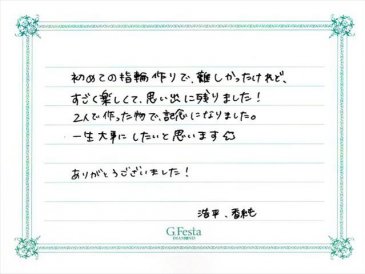 初めての指輪作りで、難しかったけれど、
すごく楽しくて、思い出に残りました！
2人で作った物で、記念になりました。
一生大事にしたいと思います☆
ありがとうございました！
浩平、香純
G.Festa
DIAMOND